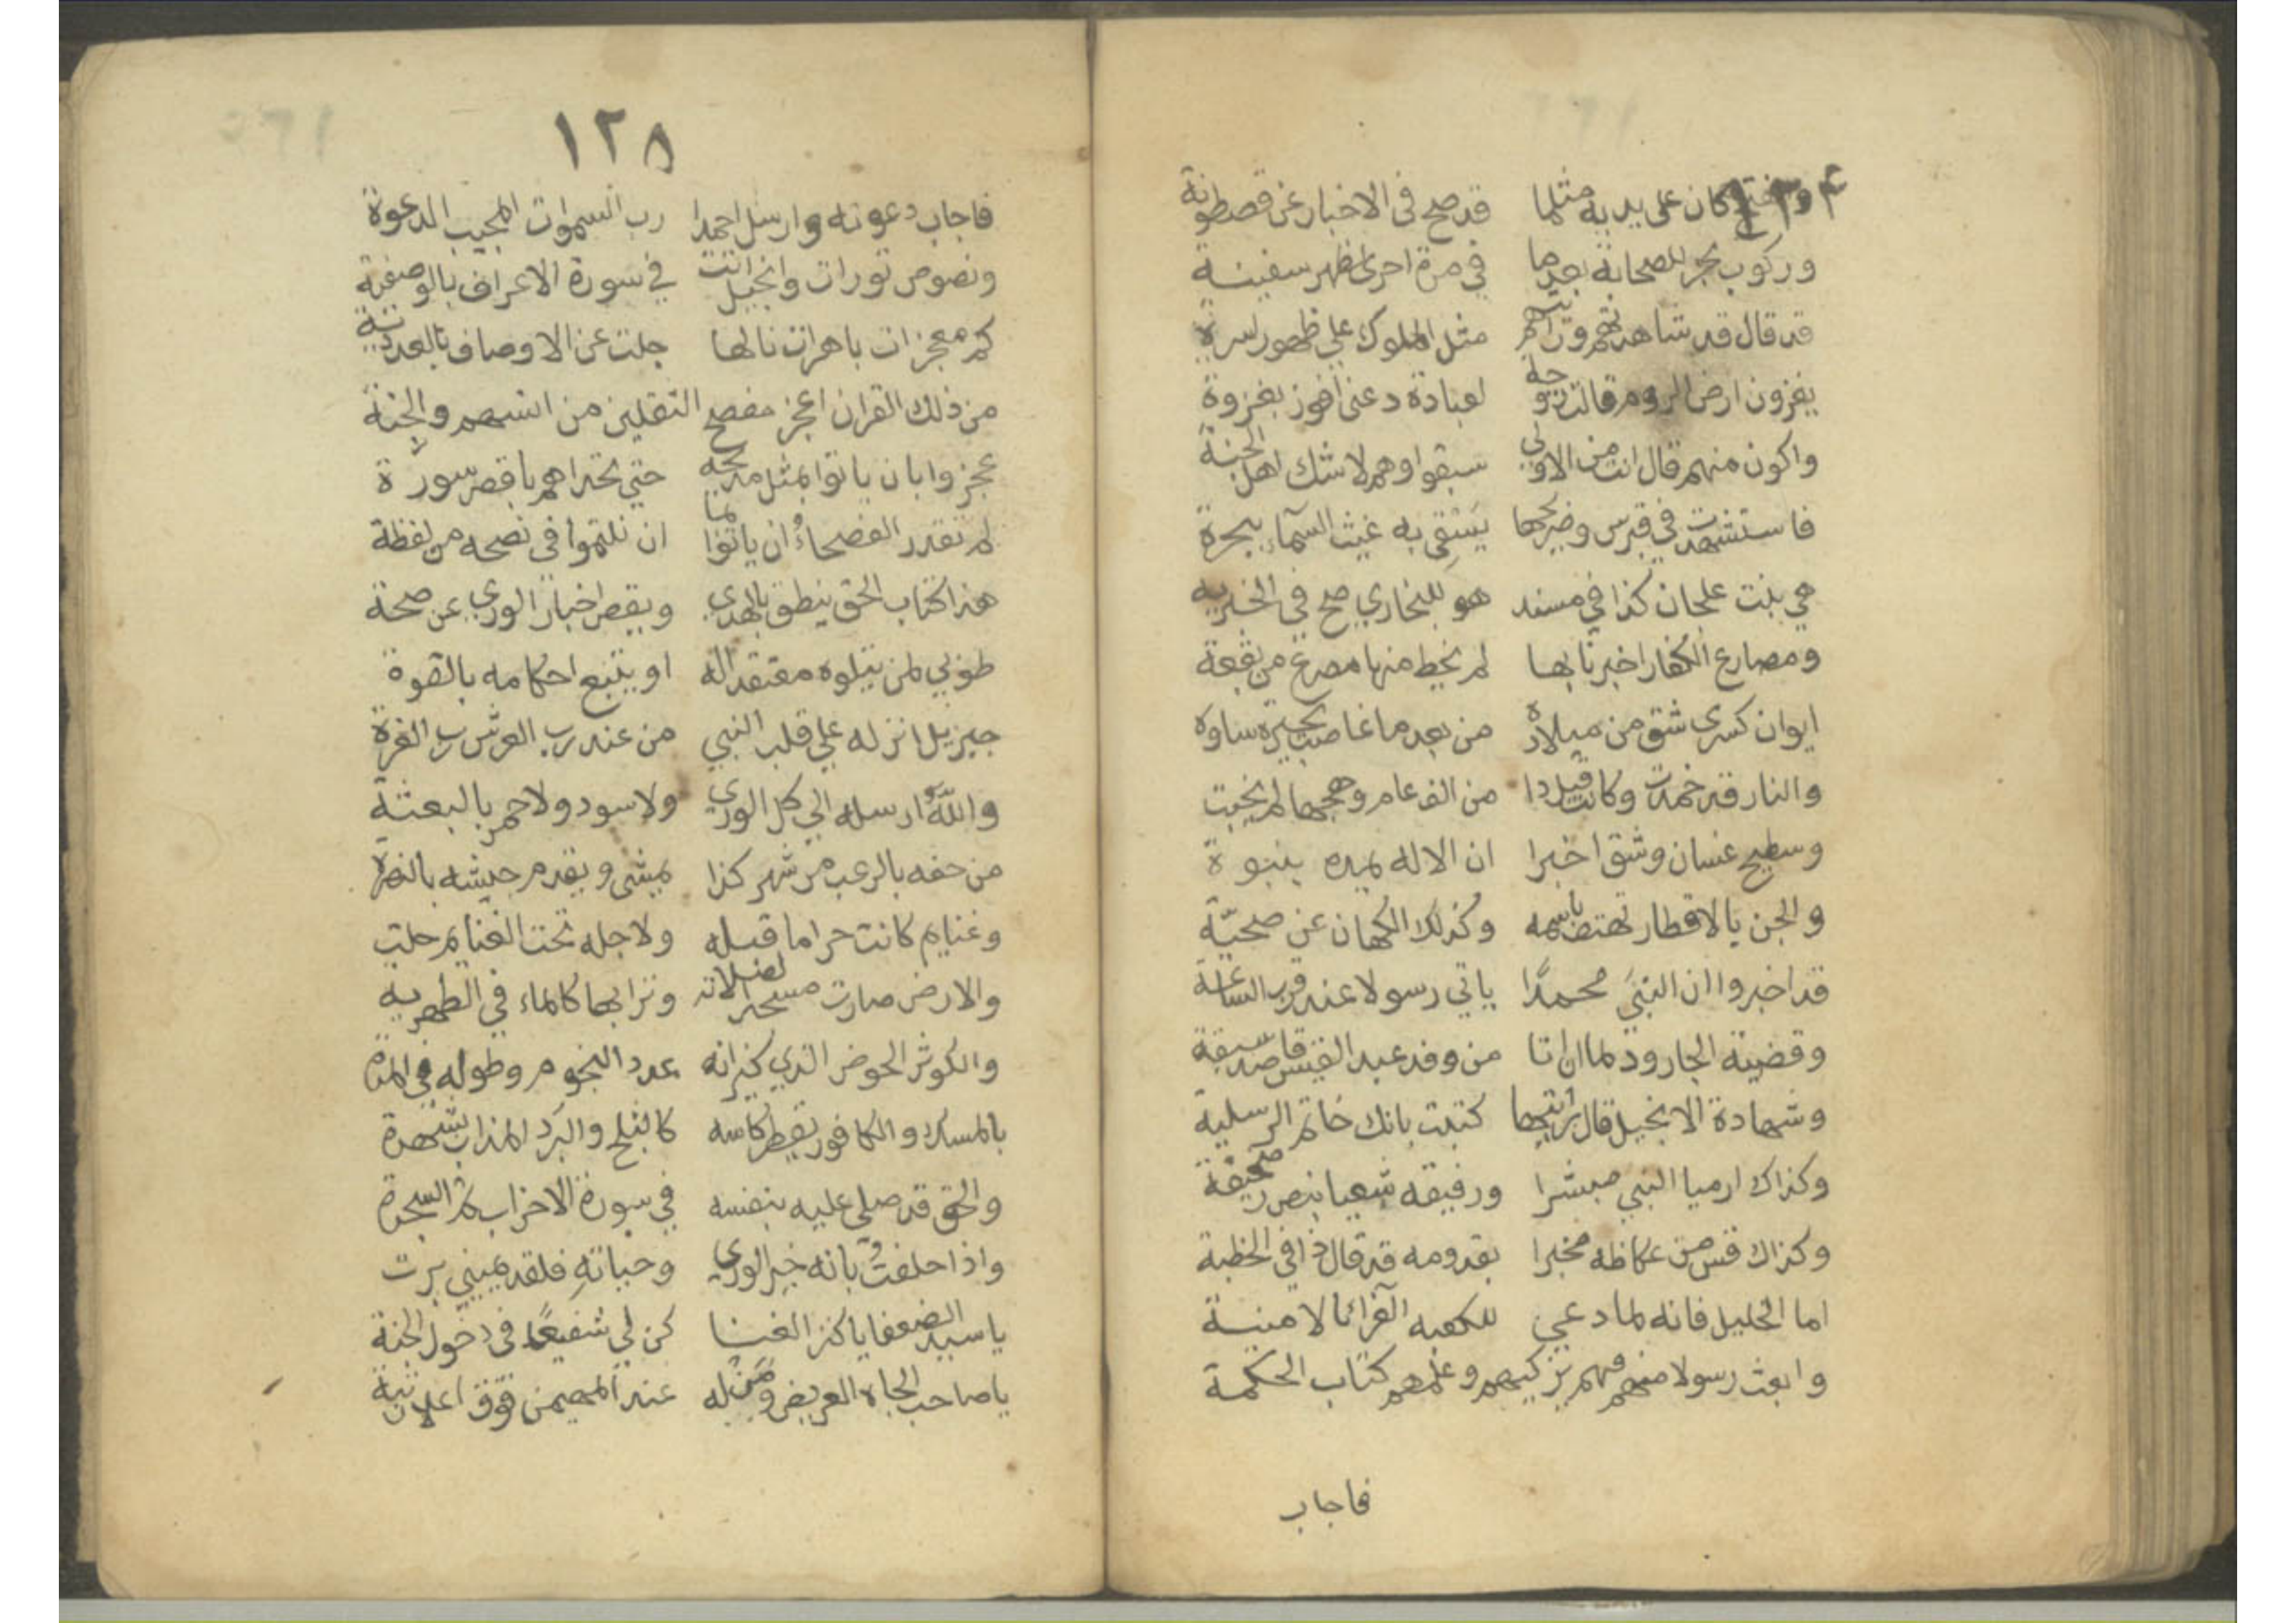 كان على يديه مثلما قد صح في الاخبار عن قصطونة
وركوب بحر للصحابة بعدما في مرة اخرى سفينة
قد قال قد شاهدتهم مثل الملوك على ظهور اسرة
يغزون ارض الروم قالت لعبادة دعني افوز بغزوة
واكون منهم قال انت من الاولى سبقوا وهم لاشك اهل الجنة
فاستشهدت في قبرس وضريحها يستقى به غيث السماء
هي بنت علجان كذا في مسند هو للبخاري صح في
ومصارع الكفار اخبرنا بها لم يخط منها مصرع من بقعة
ايوان كسرى شق من ميلاده من بعد ما غاضت بحيرة ساوة
والنار قد خمدت وكانت قبل ذا من الف عام وهجها لم يخبت
وسطيح غسان وشق اخبرا ان الاله يمده بنبوة
والجن بالاقطار تهتف باسمه وكذلك الكهان عن صحيّة
قد اخبروا ان النبيَ محمدًا ياتي رسولا عند قرب الساعة
وقضية الجارود لما ان اتا من وفد عبد القيس
وشهادة الانجيل قال كتبت بانك خاتم الرسلية
وكذاك ارميا النبي مبشرا ورفيقه شعيا بنص صحيفة
وكذاك قس من عكاظه مخبرا بقدومه قد قال ذا في الخطبة
اما الخليل فانه لما دعى للكعبه الغرا الامنية
وابعث رسولا منهم فيهم يزكيهم وعلمهم كتاب الحكمة
فاجاب
١٢٨
فاجاب دعوته وارسل احمدا رب السموات المجيب الدعوة
ونصوص تورات وانجيل اتت في سورة الاعراف بالوصفية
كم معجزات باهرات نالها جلت عن الاوصاف بالعددية
من ذلك القران اعجز مفصح الثقلين من انسهم والجنة
عجزوا بان ياتوا بمثل حتى تحداهم باقصر سورة
لم تقدر الفصحاءُ ان ياتوا بما ان تلتموا في نصحه من لفظة
هذا كتاب الحق ينطق بالهدى ويقص اخبار الورى عن صحة
طوبى لمن يتلوه معتقدا له او يتبع احكامه بالقوة
جبريل انزله على قلب النبي من عند رب العرش رب العزة
واللّه ارسله الى كل الورى ولاسود ولاحمر بالبعثة
من حفه بالرعب من شهر كذا يمشى ويقدم جيشه بالنصرة
وغنايم كانت حراما قبله ولاجله تحت الغنايم حلت
والارض صارت مسجدا لصلاته وترابها كالماء في الطهرية
والكوثر الحوض الذي كيزانه عدد النجوم وطوله في المدة
بالمسك والكافور يقطر كاسه كالثلج والبَرَد المذاب بشهدة
والحق قد صلى عليه بنفسه في سورة الاحزاب السجدة
واذا حلفتُ بانه خير الورى وحياتهِ فلقد يميني برت
يا سيد الضعفا يا كنز الغنا كن لي شفيعًا في دخول الجنة
يا صاحب الجاه العريض ومن له عند المهيمن فوق اعلا